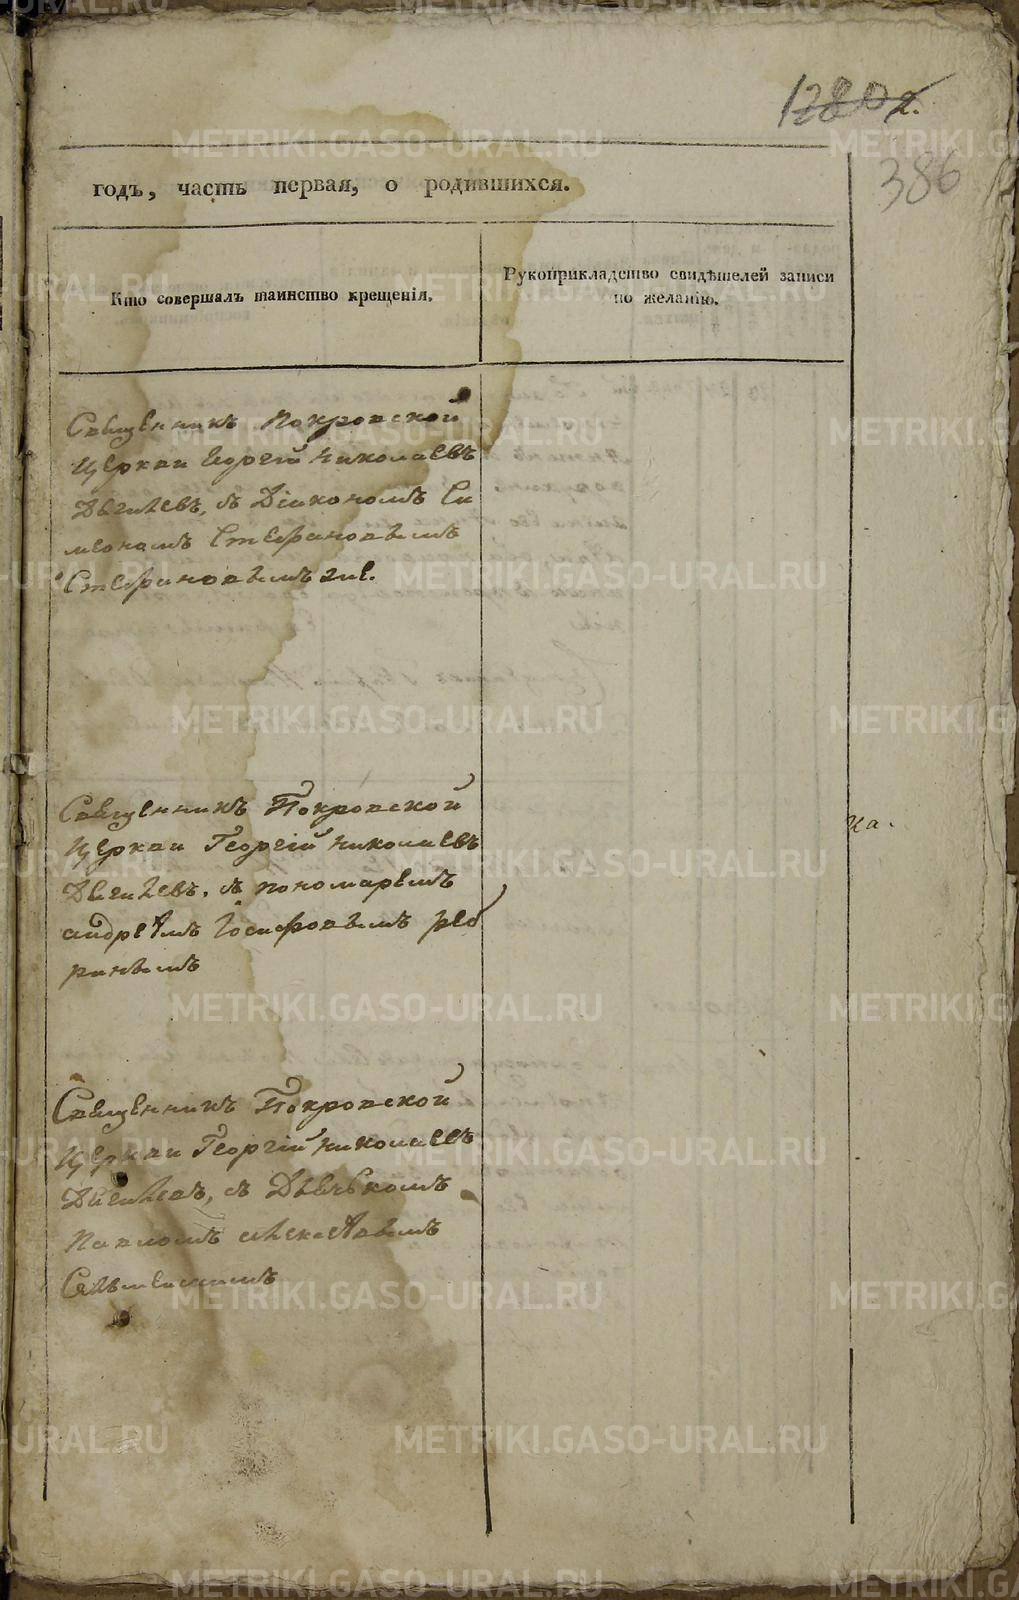 1280 2.
386
годъ, часть первая, о родившихся.
Кто совершалъ таинство крещенія.
Рукоприкладство свидѣтелей записи
по желанію.
Священникъ Покровской
Церкви Георгій Николаевъ
съ Діакономъ Си
меономъ Стефановымъ
Стефановымъ
Священникъ Покровской
Церкви Георгій Николаевъ
съ пономаремъ
андреямъ Іосифовымъ реб
ринымъ
на.
Священникъ Покровской
Церкви Георгій Николаевъ
съ Дьячькомъ
Павломъ
METRIKI.GASO-URAL.RU